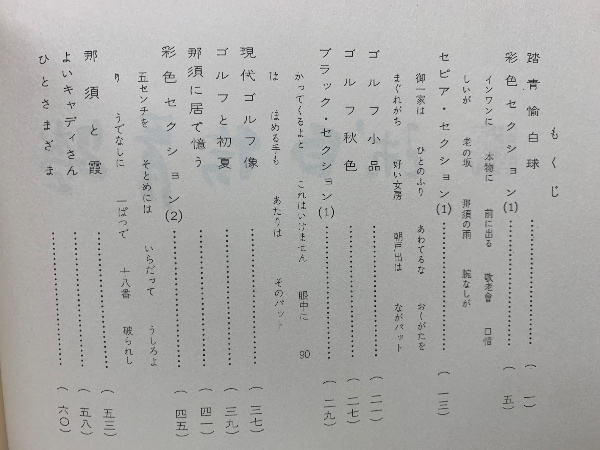 もくじ
踏青愉白球……………………（一）
彩色セクション(1)……………………（五）
インワンに　本物に　前に出る　敬老會　口惜
しいが　老の坂　那須の雨　腕なしが
セピア・セクション(1)……………………（一三）
御一家は　ひとのふり　あわてるな　おくがたを
まぐれがち　好い女房　朝戸出は　ながパット
ゴルフ小品……………………（二一）
ゴルフ秋色……………………（二七）
ブラック・セクション(1)……………………（二九）
かってくるよと　これはいけません　眼中に　90
は　ほめる手も　あたりは　そのパット
現代ゴルフ像……………………（三七）
ゴルフと初夏……………………（三九）
那須に居て憶う……………………（四一）
彩色セクション(2)……………………（四五）
五センチを　そとめには　いらだって　うしろよ
り　うでなしに　一ぱつで　十八番　破られし
那須と霞……………………（五三）
よいキャディさん……………………（五八）
ひとさまざま……………………（六〇）